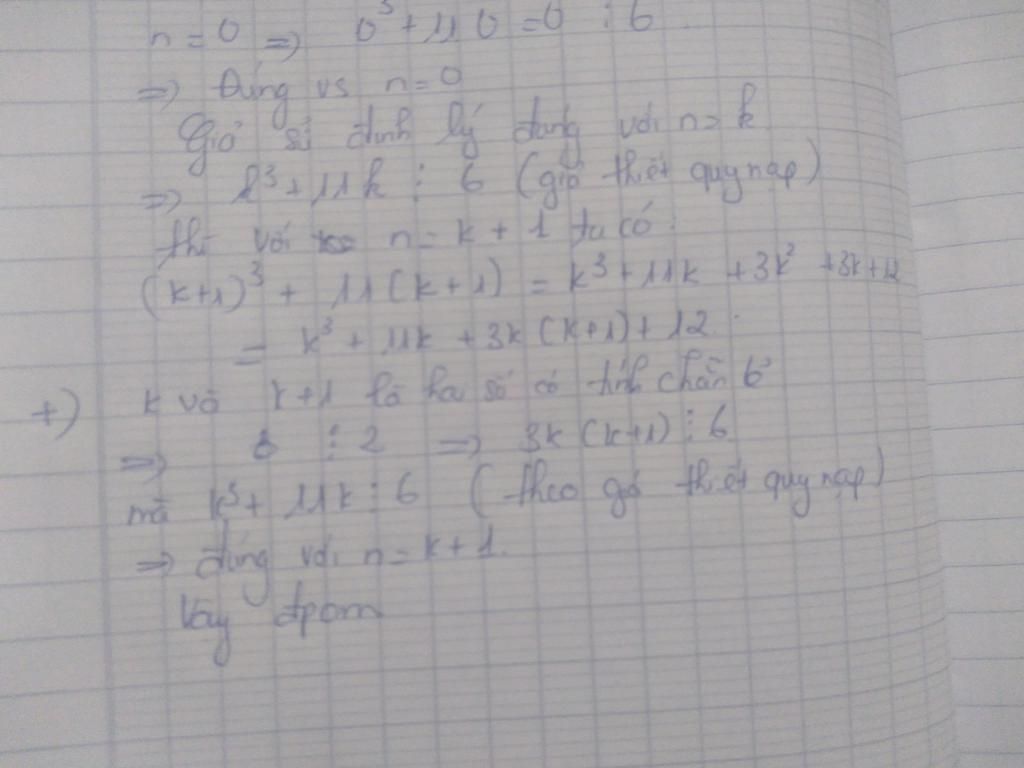 n = 0 => 0³ + 11 0 = 0 ⋮ 6
=> Đúng vs n = 0
Giả sử định lý đúng với n = k
=> k³ + 11k ⋮ 6 (giả thiết quy nạp)
thì với n = k + 1 ta có:
(k+1)³ + 11(k+1) = k³ + 11k + 3k² + 3k + 12
= k³ + 11k + 3k(k+1) + 12.
+) k và k+1 là hai số có tính chẵn lẻ
=> ⋮ 2 => 3k(k+1) ⋮ 6
mà k³ + 11k ⋮ 6 (theo giả thiết quy nạp)
=> đúng với n = k + 1.
Vậy đpcm